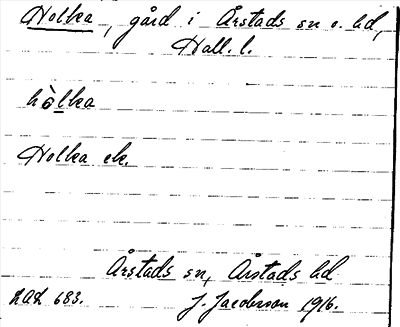 Holka, gård i Årstads sn o. hd,
Hall. l.
hòlka
Holka ek.
Årstads sn, Årstads hd
LAL 683. J. Jacobsson 1916.